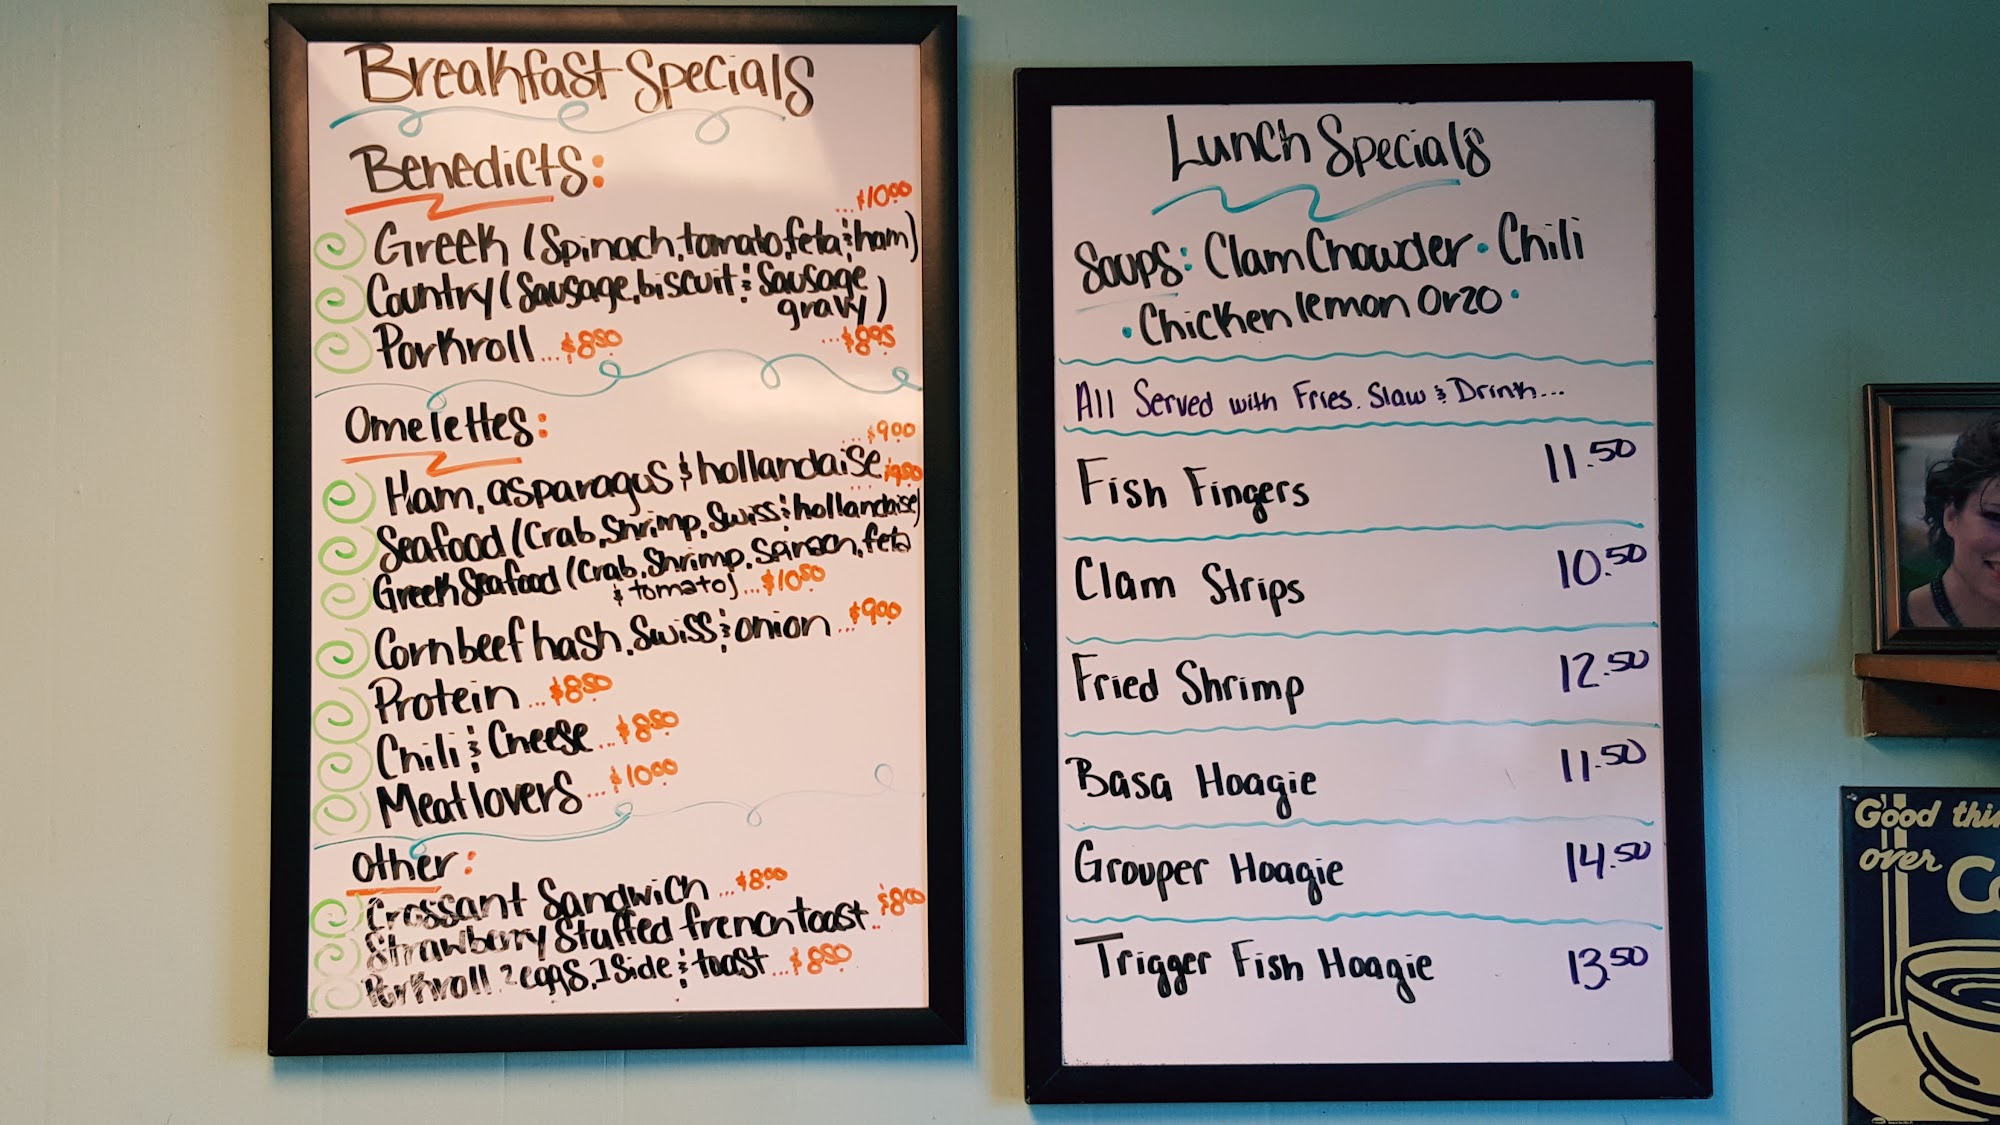 Breakfast Specials
Benedicts:
...$10.00
Greek (Spinach, tomato, feta & ham)
Country (Sausage, biscuit & Sausage
gravy)
...$8.95
Porkroll...$8.50
Omelettes:
...$9.00
Ham, asparagus & hollandaise
Seafood (Crab, Shrimp, Swiss & hollandaise)
Greek Seafood (Crab, Shrimp, Spinach, feta
& tomato)...$10.50
Corn beef hash, Swiss & onion...$9.00
Protein...$8.50
Chili & Cheese...$8.50
Meatlovers...$10.00
Other:
Crossant Sandwich...$8.00
Strawberry Stuffed french toast..$8.00
Porkroll 2 eggs, 1 Side & toast...$8.50
Lunch Specials
Soups: Clam Chowder • Chili
• Chicken lemon Orzo •
All Served with Fries, Slaw & Drink...
Fish Fingers 11.50
Clam Strips 10.50
Fried Shrimp 12.50
Basa Hoagie 11.50
Grouper Hoagie 14.50
Trigger Fish Hoagie 13.50
Good
over